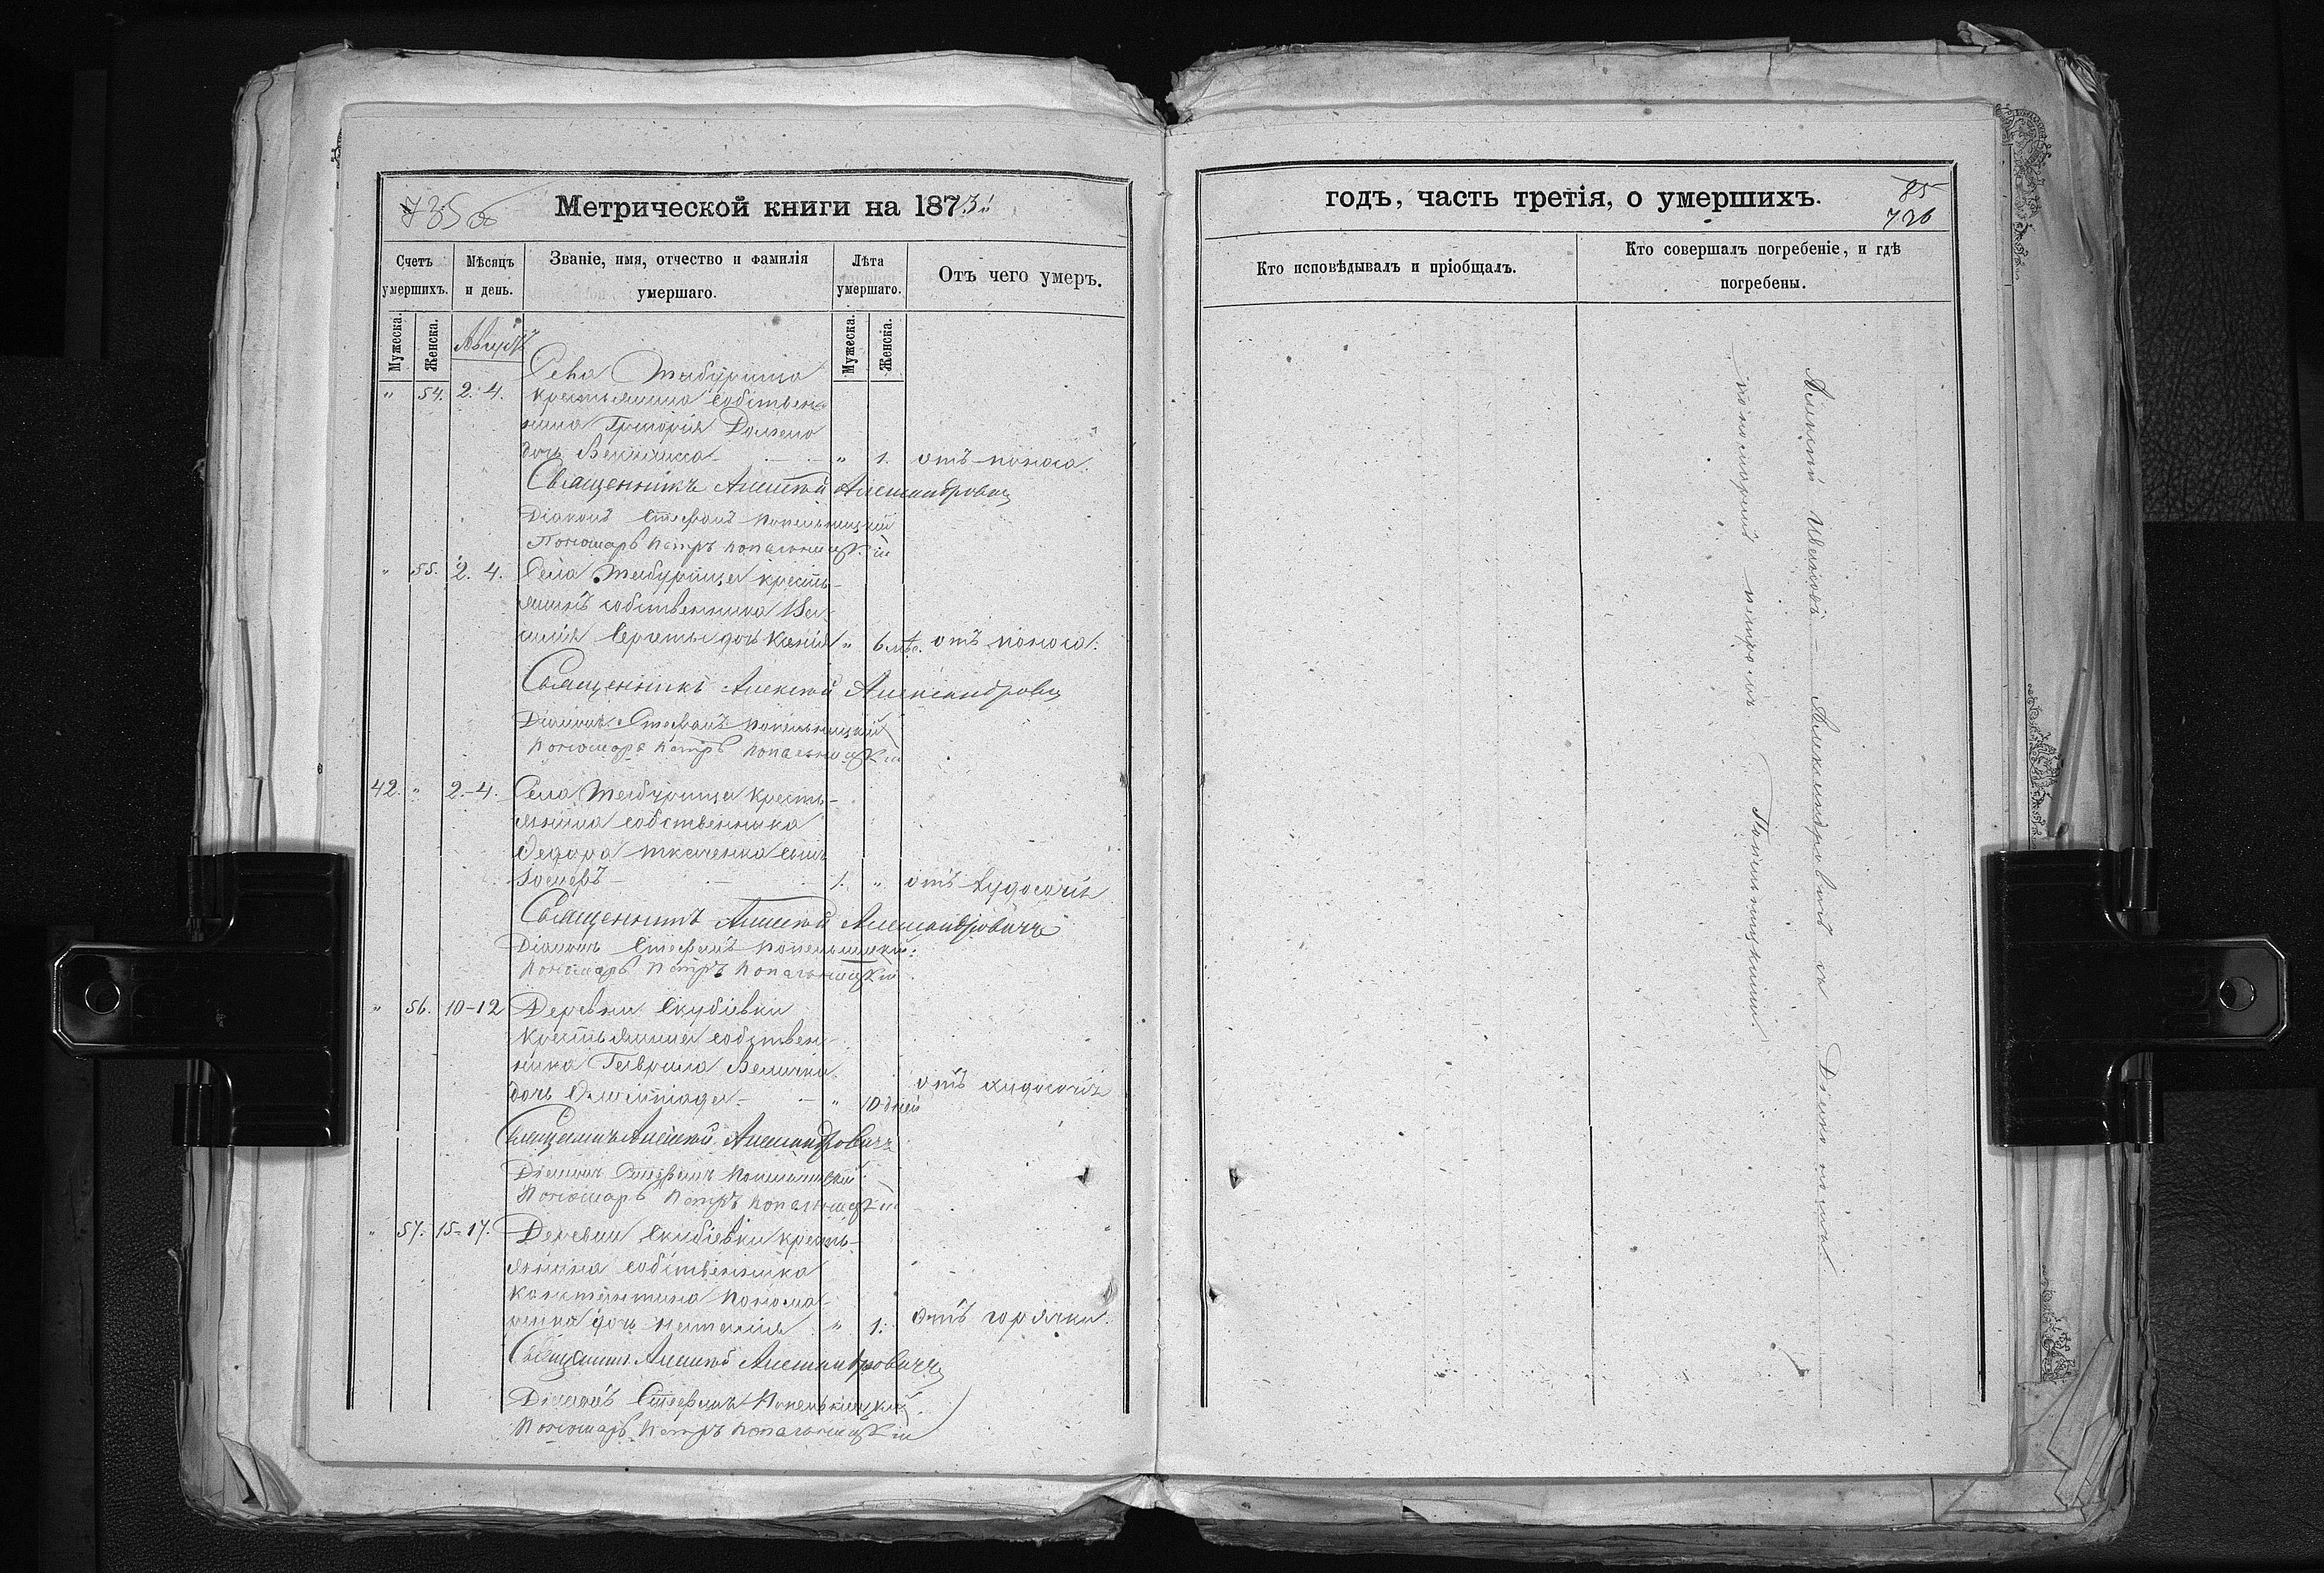 735 об
Метрической книги на 1873й
Счетъ умершихъ.
Мѣсяцъ и день.
Званіе, имя, отчество и фамилія умершаго.
Лѣта умершаго.
Отъ чего умеръ.
Мужеска.
Женска.
Мужеска.
Женска.
Августъ
Села Табурища
" 54. 2. 4. крестьянина собствен-
ника Григорія
дочь " 1. отъ поноса.
Священникъ Алексѣй Александровичъ
Діаконъ Стефанъ Попельницкій
Пономарь Петръ Попельницкій
" 55. 2. 4. Села Табурища кресть-
янина собственника Ва-
силія дочь Ксенія " 6 мѣс. отъ поноса.
Священникъ Алексѣй Александровичъ
Діаконъ Стефанъ Попельницкій
Пономарь Петръ Попельницкій
42. " 2.-4. Села Табурища кресть-
янина собственника
Федора Ткаченка сынъ
1. " отъ худосочія
Священникъ Алексѣй Александровичъ
Діаконъ Стефанъ Попельницкій
Пономарь Петръ Попельницкій
" 56. 10-12 Деревни Скубіевки
крестьянина собствен-
ника Гаврила Велички
дочь Олимпіада - " 10 дней отъ худосочія
Священникъ Алексѣй Александровичъ
Діаконъ Стефанъ Попельницкій
Пономарь Петръ Попельницкій
" 57. 15-17. Деревни Скубіевки кресть-
янина собственника
Константина Понома-
ренка дочь Наталія " 1. отъ горячки.
Священникъ Алексѣй Александровичъ
Діаконъ Стефанъ Попельницкій
Пономарь Петръ Попельницкій
годъ, часть третія, о умершихъ.
85
736
Кто исповѣдывалъ и пріобщалъ.
Кто совершалъ погребеніе, и гдѣ погребены.
Алексѣй Александровичъ съ Діакономъ
пономаремъ Петромъ Попельницкими.